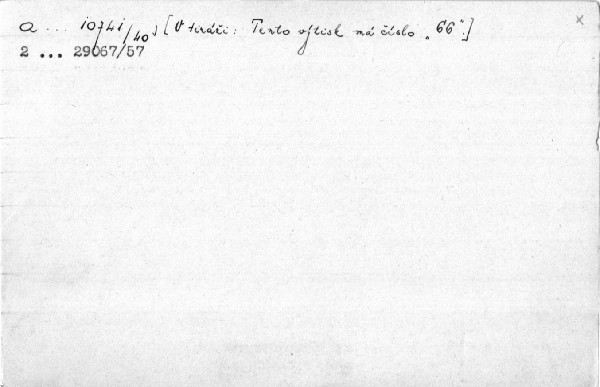 a ... 10741/40; [V tiráži: Tento výtisk má číslo „66“.]
2 ... 29067/57